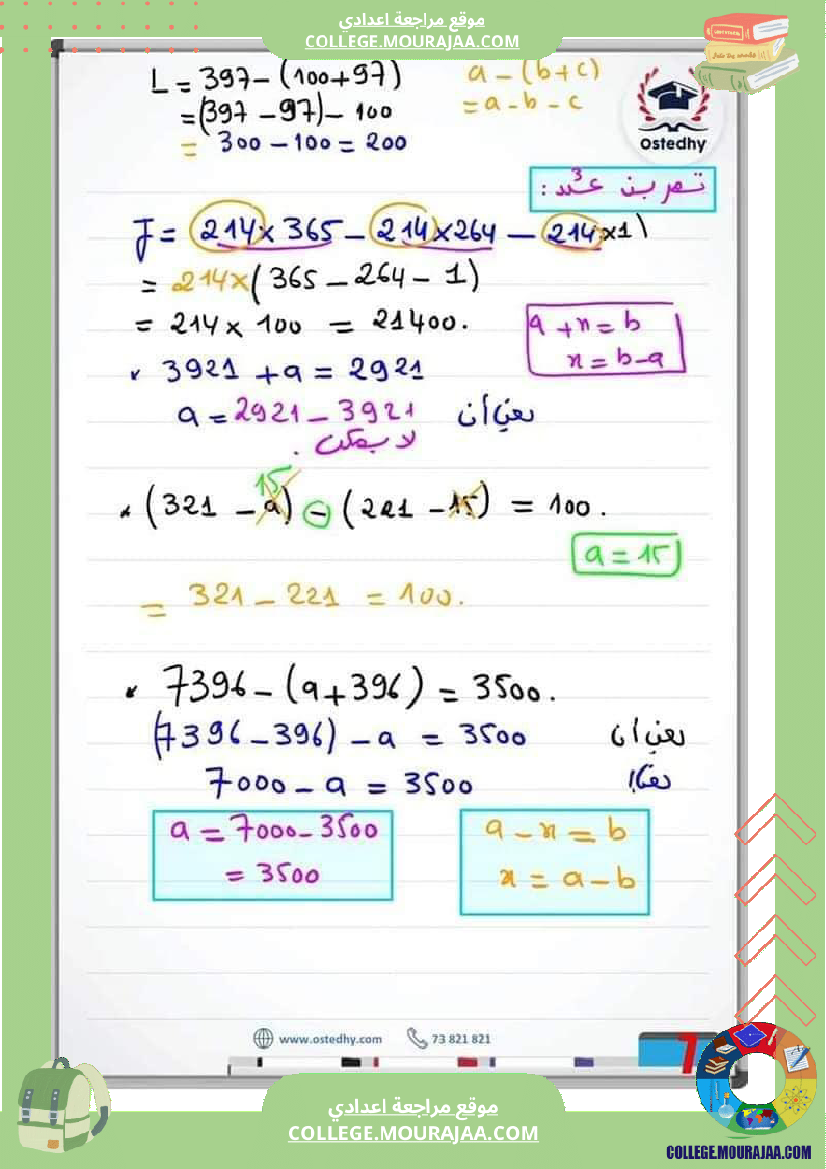 موقع مراجعة اعدادي
COLLEGE.MOURAJAA.COM
L = 397 - (100+97)
a - (b+c)
= (397 - 97) - 100
= a - b - c
= 300 - 100 = 200
ostedhy
تمرين عدد 3 :
J = 214 x 365 - 214 x 264 - 214 x 1
= 214 x (365 - 264 - 1)
= 214 x 100 = 21400.
a + x = b
x = b - a
3921 + a = 2921
a = 2921 - 3921 يعني أن
لا يمكن .
15
(321 - a) - (221 - 15) = 100.
a = 15
= 321 - 221 = 100.
7396 - (a + 396) = 3500.
(7396 - 396) - a = 3500 يعني أن
7000 - a = 3500
a = 7000 - 3500
= 3500
a - x = b
x = a - b
www.ostedhy.com
73 821 821
7
موقع مراجعة اعدادي
COLLEGE.MOURAJAA.COM
COLLEGE.MOURAJAA.COM